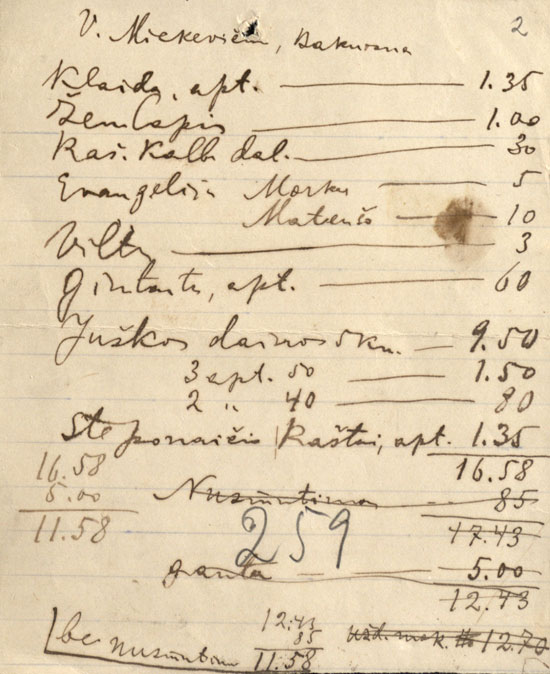 2
V. Mickevičiui, Bakuisna
Klaida, apt. — 1.35
Žemlapis — 1.00
Raš. Kalb. dal. — 30
Evangelija Morkus — 5
Mateušo — 10
Viltis — 3
Gintaitu, apt. — 60
Juškos dainos 5 kn. — 9.50
3 apt. 50 — 1.50
2 " 40 — 80
Steponaičio Raštai, apt. 1.35
16.58
16.58
5.00
11.58
Nusiuntimas — 85
17.43
259
gauta — 5.00
12.43
be nusiuntimo
12.43
85
11.58
12.70